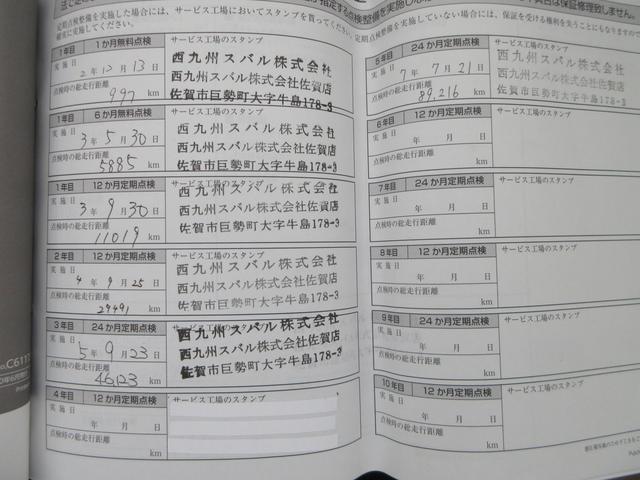 定期点検整備を実施した場合には、サービス工場においてスタンプを買ってください。定期点検整備を実施していない場合には、保証を受ける権利を失うこともあります
確実に実施してください。
1年目 1か月無料点検 サービス工場のスタンプ
実施日 2年12月13日
点検時の総走行距離
997 km
西九州スバル株式会社
西九州スバル株式会社佐賀店
佐賀市巨勢町大字牛島178-3
1年目 6か月無料点検 サービス工場のスタンプ
実施日 3年5月30日
点検時の総走行距離
5885 km
西九州スバル株式会社
西九州スバル株式会社佐賀店
佐賀市巨勢町大字牛島178-3
1年目 12か月定期点検 サービス工場のスタンプ
実施日 3年9月30日
点検時の総走行距離
11019 km
西九州スバル株式会社
西九州スバル株式会社佐賀店
佐賀市巨勢町大字牛島178-3
2年目 12か月定期点検 サービス工場のスタンプ
実施日 4年9月25日
点検時の総走行距離
29491 km
西九州スバル株式会社
西九州スバル株式会社佐賀店
佐賀市巨勢町大字牛島178-3
3年目 24か月定期点検 サービス工場のスタンプ
実施日 5年9月23日
点検時の総走行距離
46123 km
西九州スバル株式会社
西九州スバル株式会社佐賀店
佐賀市巨勢町大字牛島178-3
4年目 12か月定期点検 サービス工場のスタンプ
実施日 年 月 日
点検時の総走行距離
km
5年目 24か月定期点検 サービス工場のスタンプ
実施日 7年7月21日
点検時の総走行距離
89,216 km
西九州スバル株式会社
西九州スバル株式会社佐賀店
佐賀市巨勢町大字牛島178-3
6年目 12か月定期点検 サービス工場のスタンプ
実施日 年 月 日
点検時の総走行距離
km
7年目 24か月定期点検 サービス工場のスタンプ
実施日 年 月 日
点検時の総走行距離
km
8年目 12か月定期点検 サービス工場のスタンプ
実施日 年 月 日
点検時の総走行距離
km
9年目 24か月定期点検 サービス工場のスタンプ
実施日 年 月 日
点検時の総走行距離
km
10年目 12か月定期点検 サービス工場のスタンプ
実施日 年 月 日
点検時の総走行距離
km